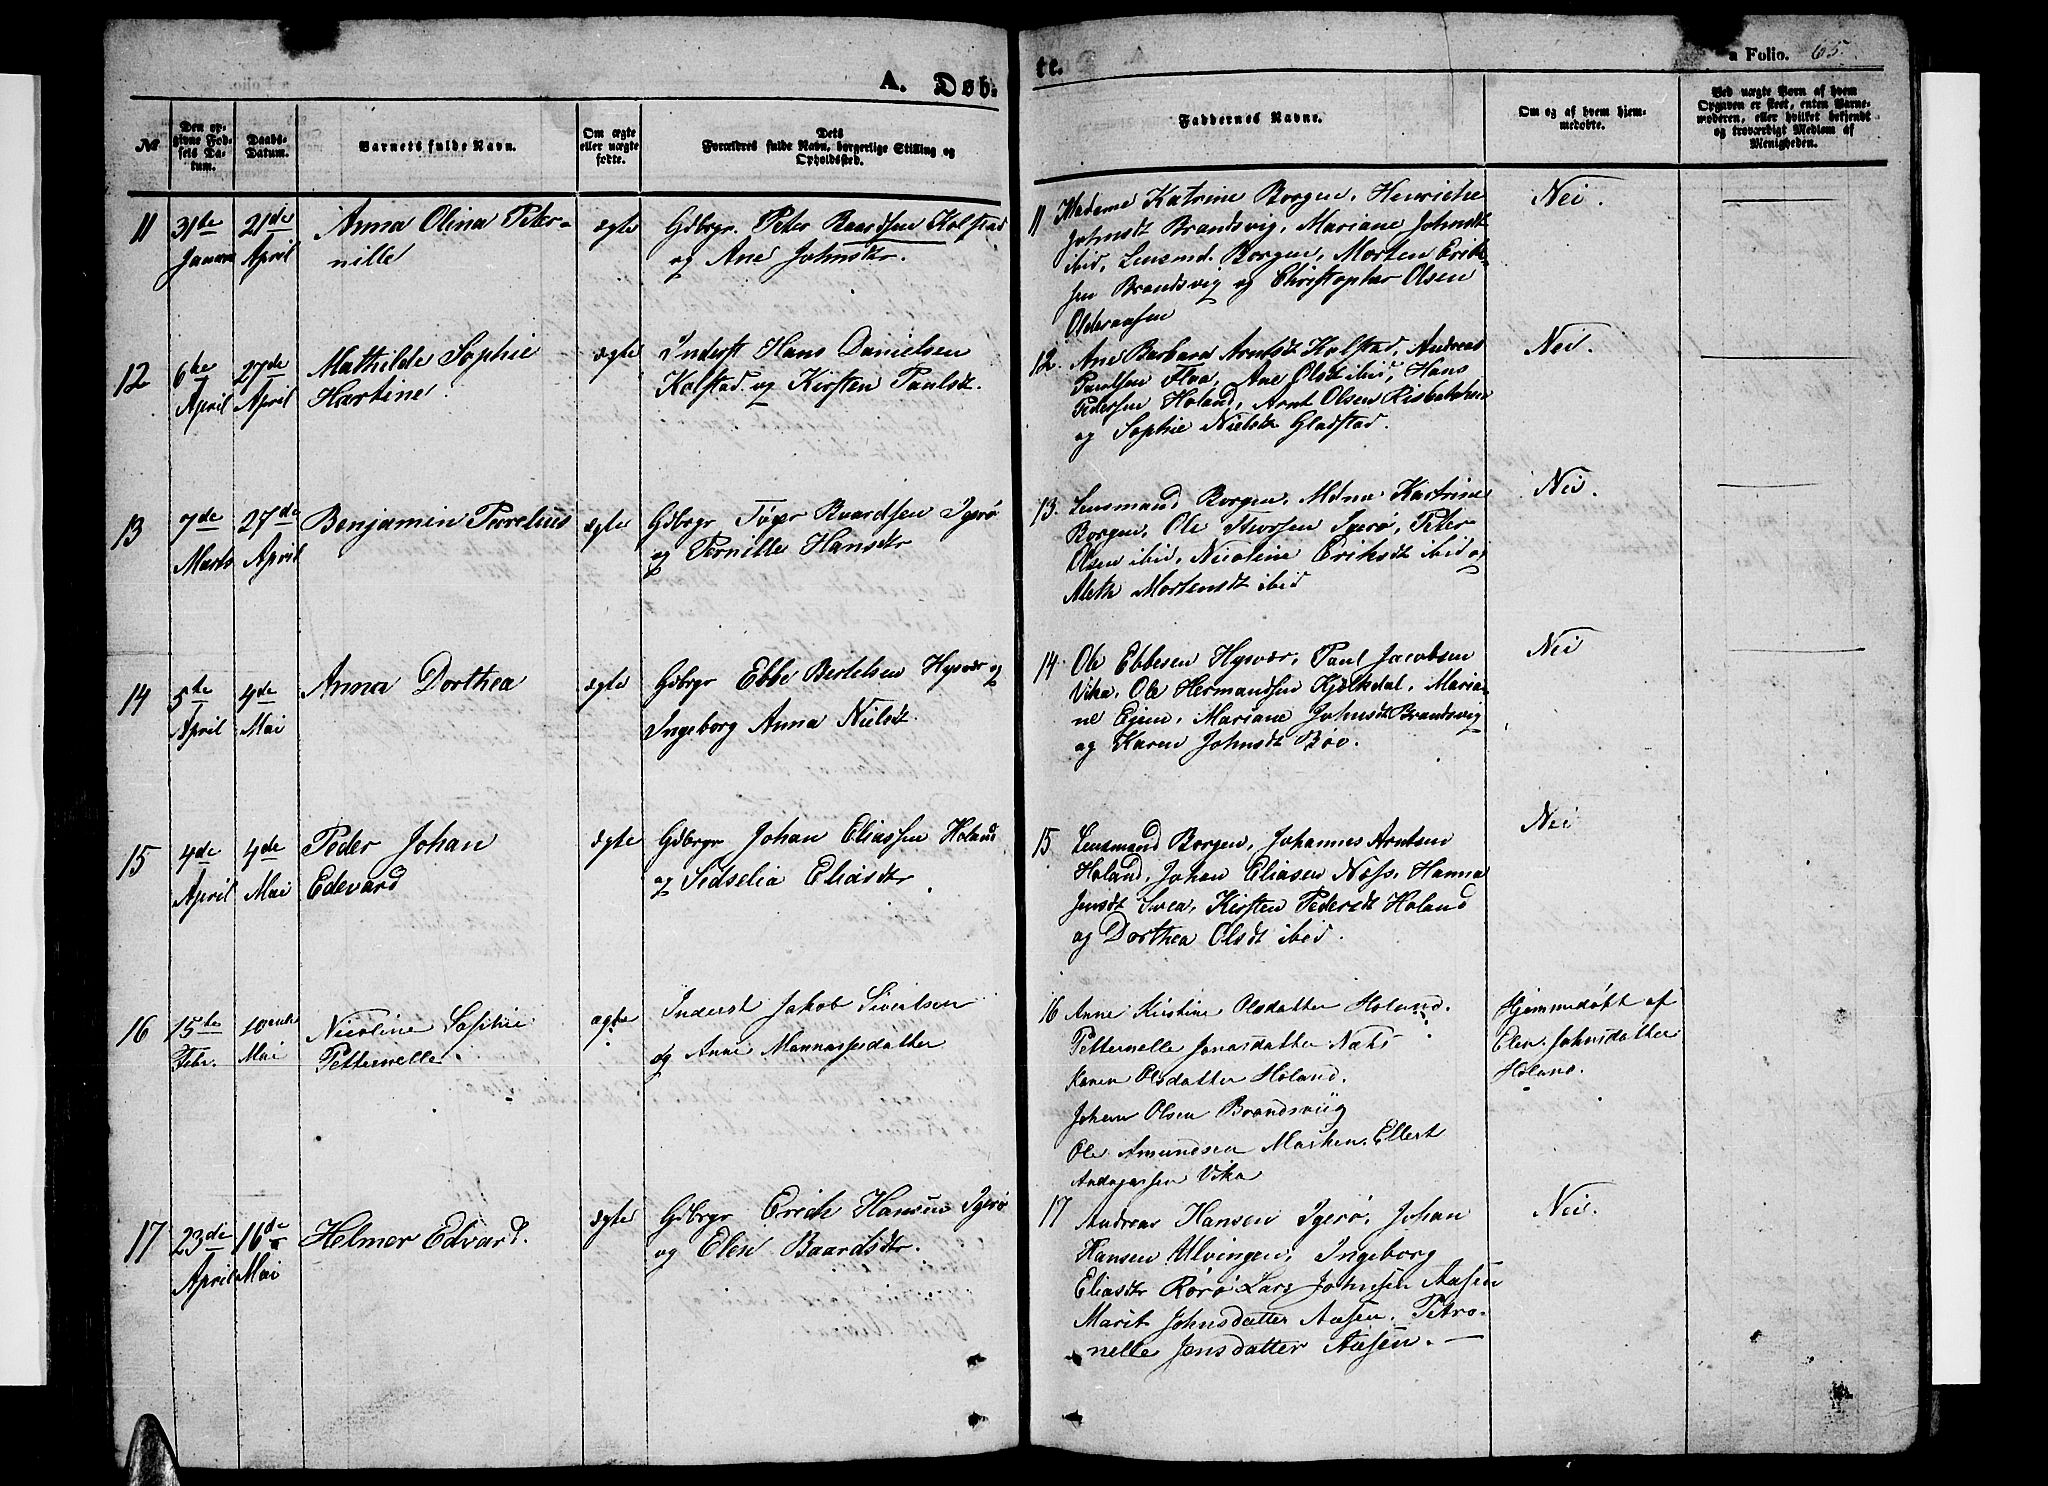 A. Døb-
te.
a Folio. 65.
№
Den op-
givne Fød-
sels Da-
tum.
Daabs-
Datum.
Barnets fulde Navn.
Om ægte
eller uægte
fødte.
Dets
Forældres fulde Navn, borgerlige Stilling og
Opholdssted.
Faddernes Navne.
Om og af hvem hjem-
medøbte.
Ved uægte Børn af hvem
Opgaven er skeet, enten Barne-
moderen, eller hvilket bekjendt
og troværdigt Medlem af
Menigheden.
11
31te
Januar
21de
April
Anna Olina Peter-
nille
ægte
Gdbrgr. Peter Baardsen Kolstad
og Ane Johnsdtr.
11 Madame Katrine Borgen, Henriche
Johnsdt Brandsvig, Mariane Johnsdt
ibid, Lensmd. Borgen, Morten Erik-
sen Brandsvig og Christopher Olsen
Olderaasen
Nei.
12
6te
April
27de
April
Mathilde Sophie
Hartine
ægte
Inderst Hans Danielsen
Kolstad og Kirsten Paulsdt.
12. Ane Barbara Arntsdt Kolstad, Andreas
Paulsen Floa, Ane Olsdt ibid, Hans
Pedersen Holand, Arnt Olsen
og Sophie Nielsdt Gladstad.
Nei.
13
7de
Marts
27de
April
Benjamin Perelius
ægte
Gdbrgr Tøger Baardsen Igerø
og Pernille Hansdtr
13. Lensmand Borgen, Mdme Kartrine
Borgen, Ole Thorsen Igerø, Peter
Olsen ibid, Nicoline Eriksdt ibid og
Aleth Mortensdt ibid
Nei.
14
5te
April
4de
Mai
Anna Dorthea
ægte
Gdbrgr Ebbe Bertelsen Hysvær og
Ingeborg Anna Nielsdt.
14. Ole Ebbesen Hysvær, Paul Jacobsen
Vika, Ole Hermandsen Kjølkdal, Maria-
ne Ejem, Mariane Johnsdt Brandsvig
og Karen Johnsdt Bøe.
Nei
15
4de
April
4de
Mai
Peder Johan
Edevard
ægte
Gdbrgr Johan Eliassen Holand
og Sidselia Eliasdtr.
15 Lensmand Borgen, Johannes Arntsen
Holand, Johan Eliasen Næss, Hanna
Jensdt Svea, Kirsten Pedersdt Holand
og Dorthea Olsdt ibid.
Nei
16
15te
Febr.
10ende
Mai
Nicoline Sophie
Petternelle.
ægte
Inderst Jakob Sivertsen
og Anne Mannassesdatter
16 Anne Kirstine Olsdatter Holand.
Petternelle Jonasdatter Næss
Karen Olsdatter Holand.
Johan Olsen Brandsviig
Ole Amundsen Marken. Ellert
Andreassen Vika
Hjemmedøbt af
Elen Johnsdatter
Holand.
17
23de
April
16de
Mai
Helmer Edvard.
ægte
Gdbrgr Erich Hansen Igerø
og Elen Baardsdtr.
17 Andreas Hansen Igerø, Johan
Hansen Ulvingen, Ingeborg
Eliasdtr Rørø Lars Johnsen Aasen
Marit Johnsdatter Aasen. Petro-
nelle Jonsdatter Aasen. —
Nei.